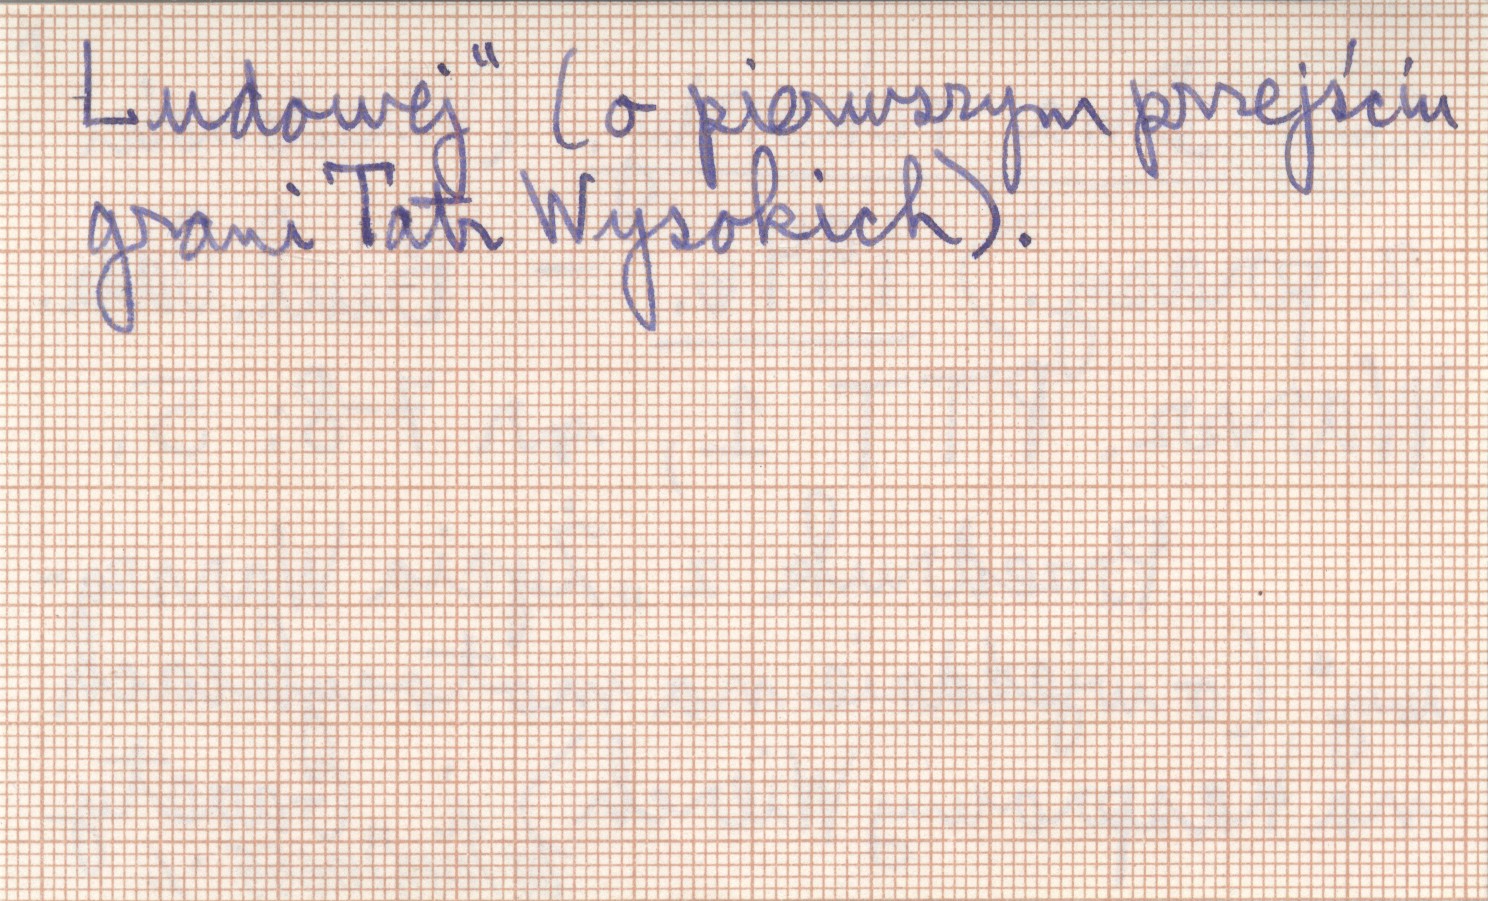 Ludowej" (o pierwszym przejściu
grani Tatr Wysokich).